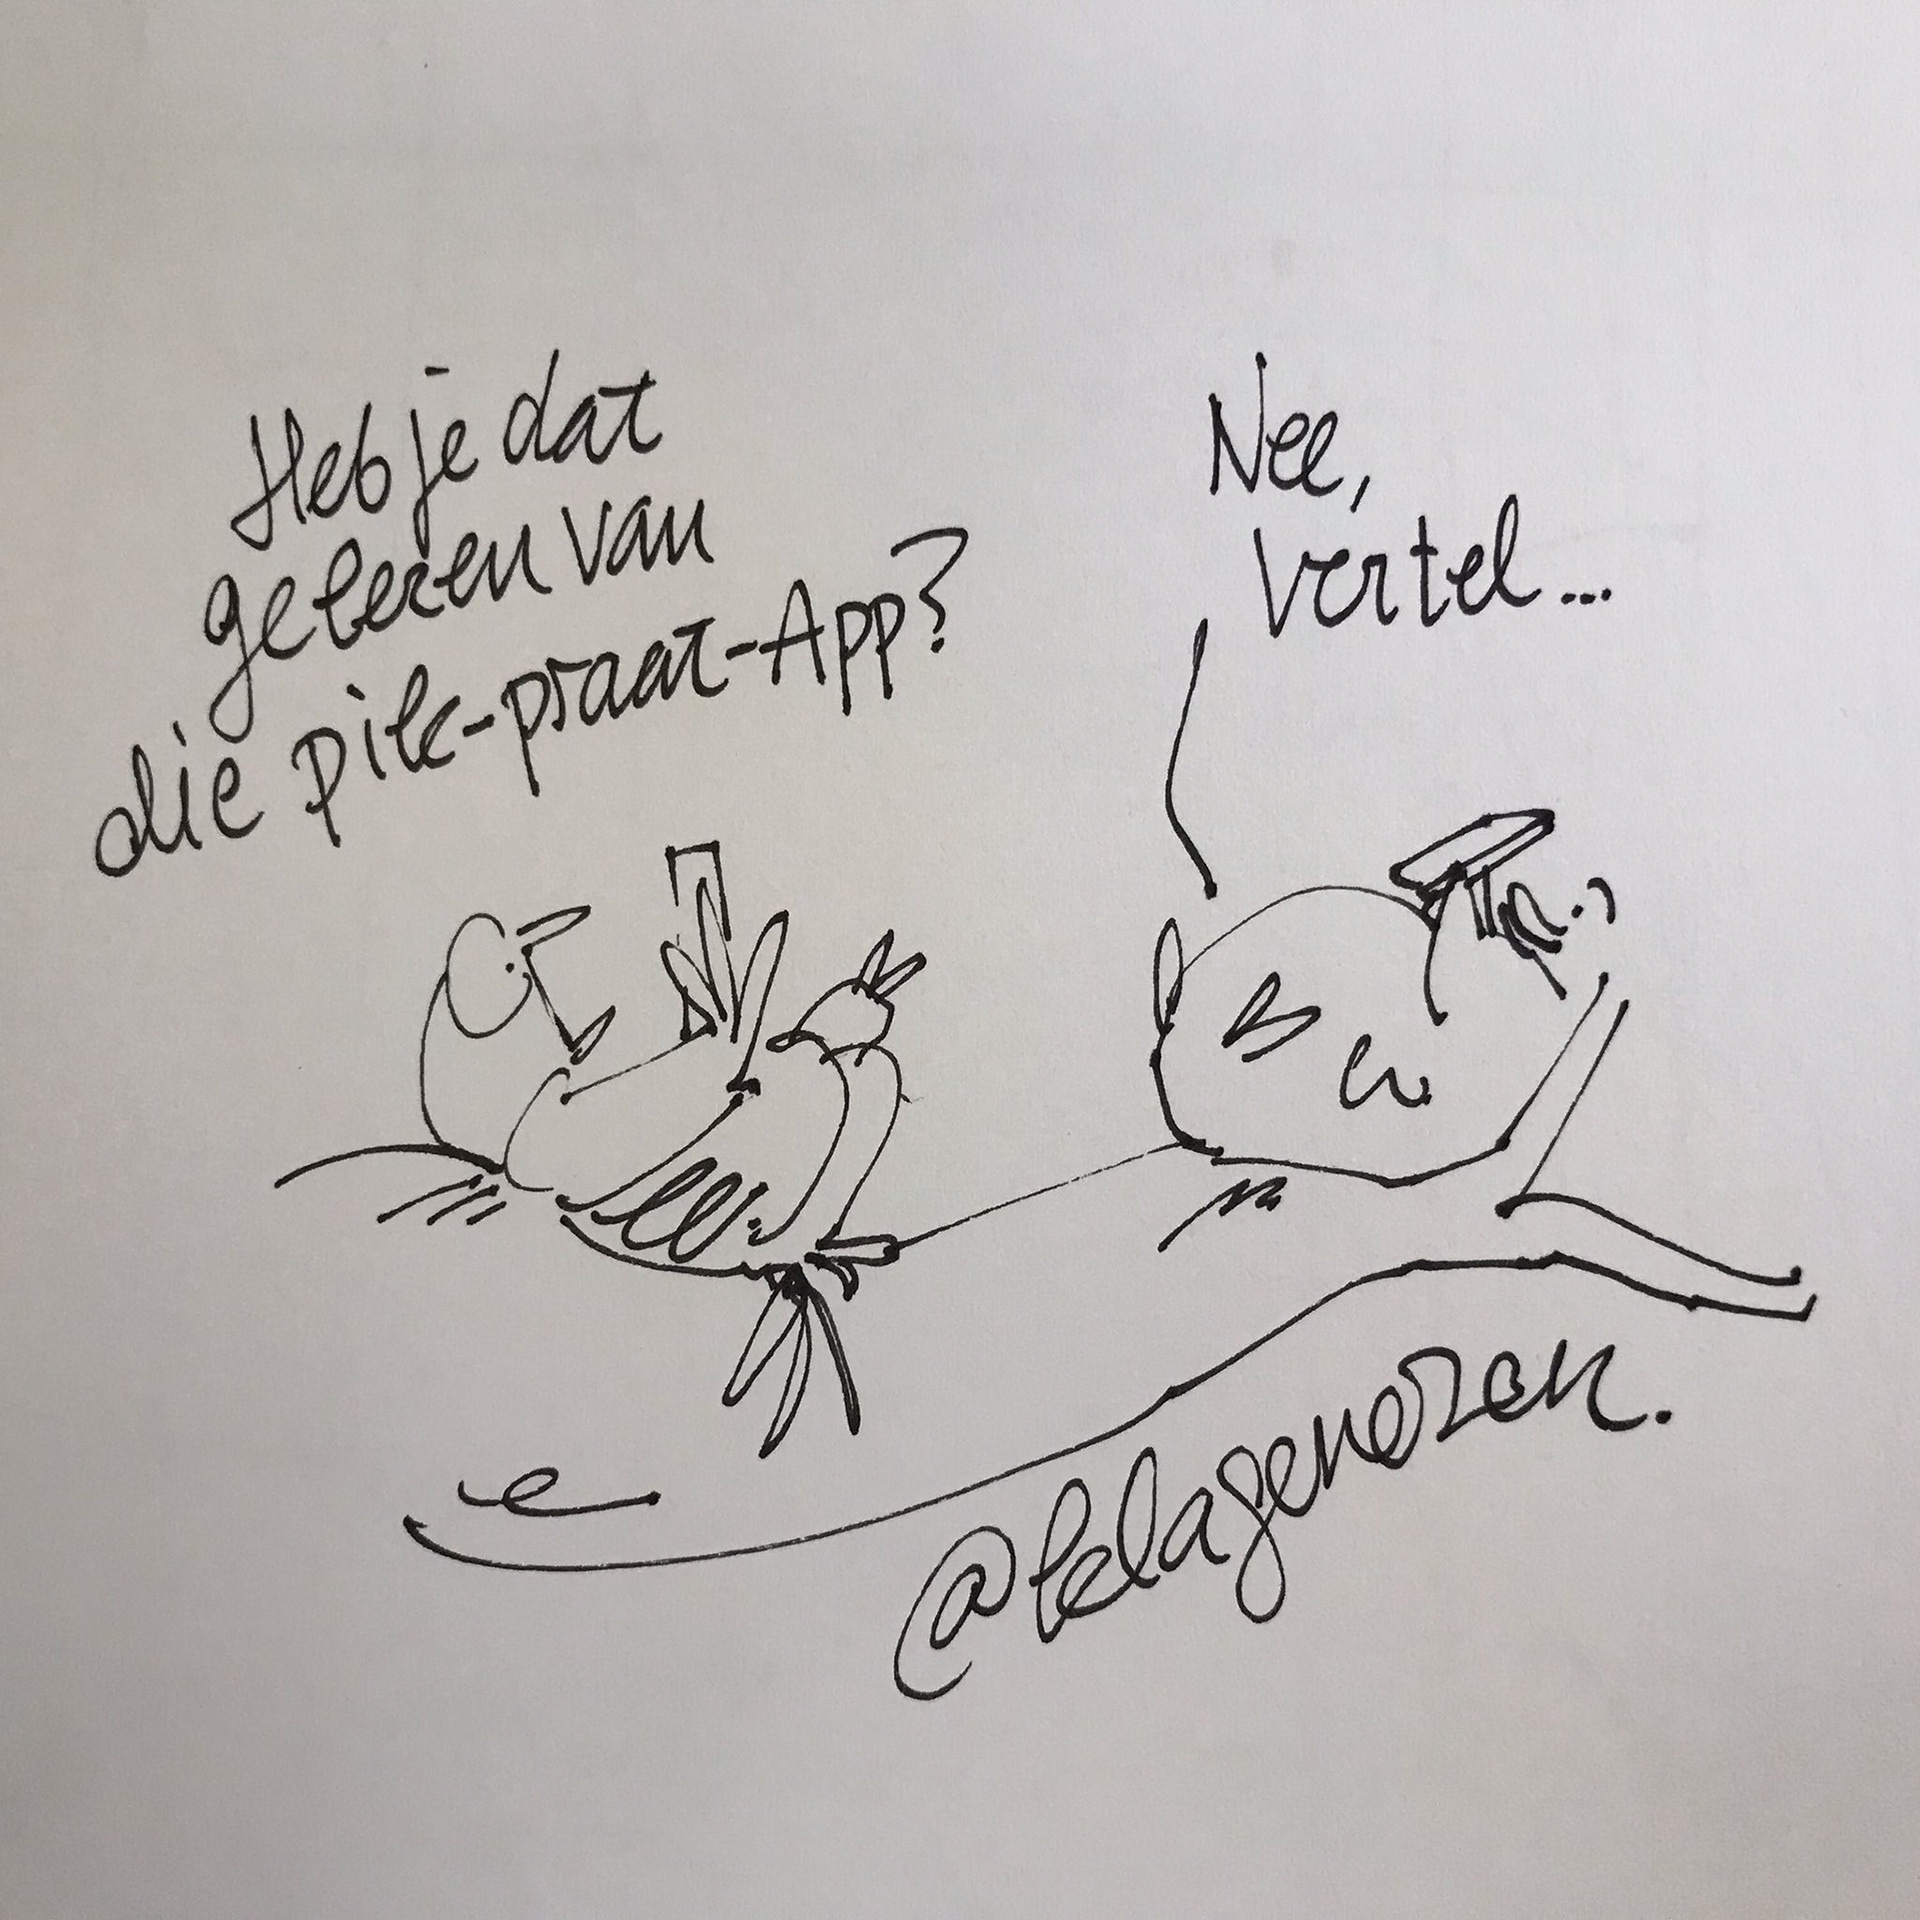 Heb je dat
gelezen van
die pik-praat-App?
Nee,
vertel...
@klagenozen.